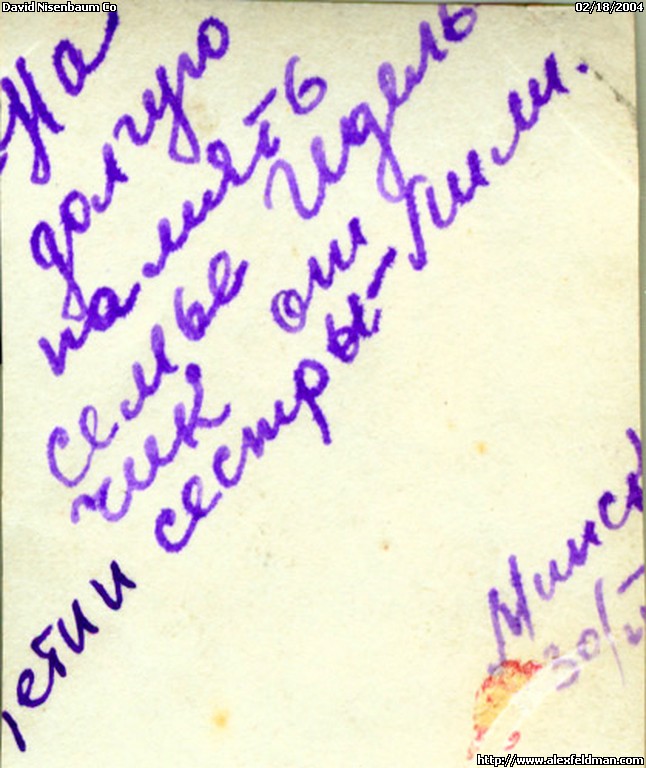 David Nisenbaum Co 02/18/2004
На
долгую
память
семье Идель
чик от
сестры-
Минск
30/
http://www.alexfeldman.com